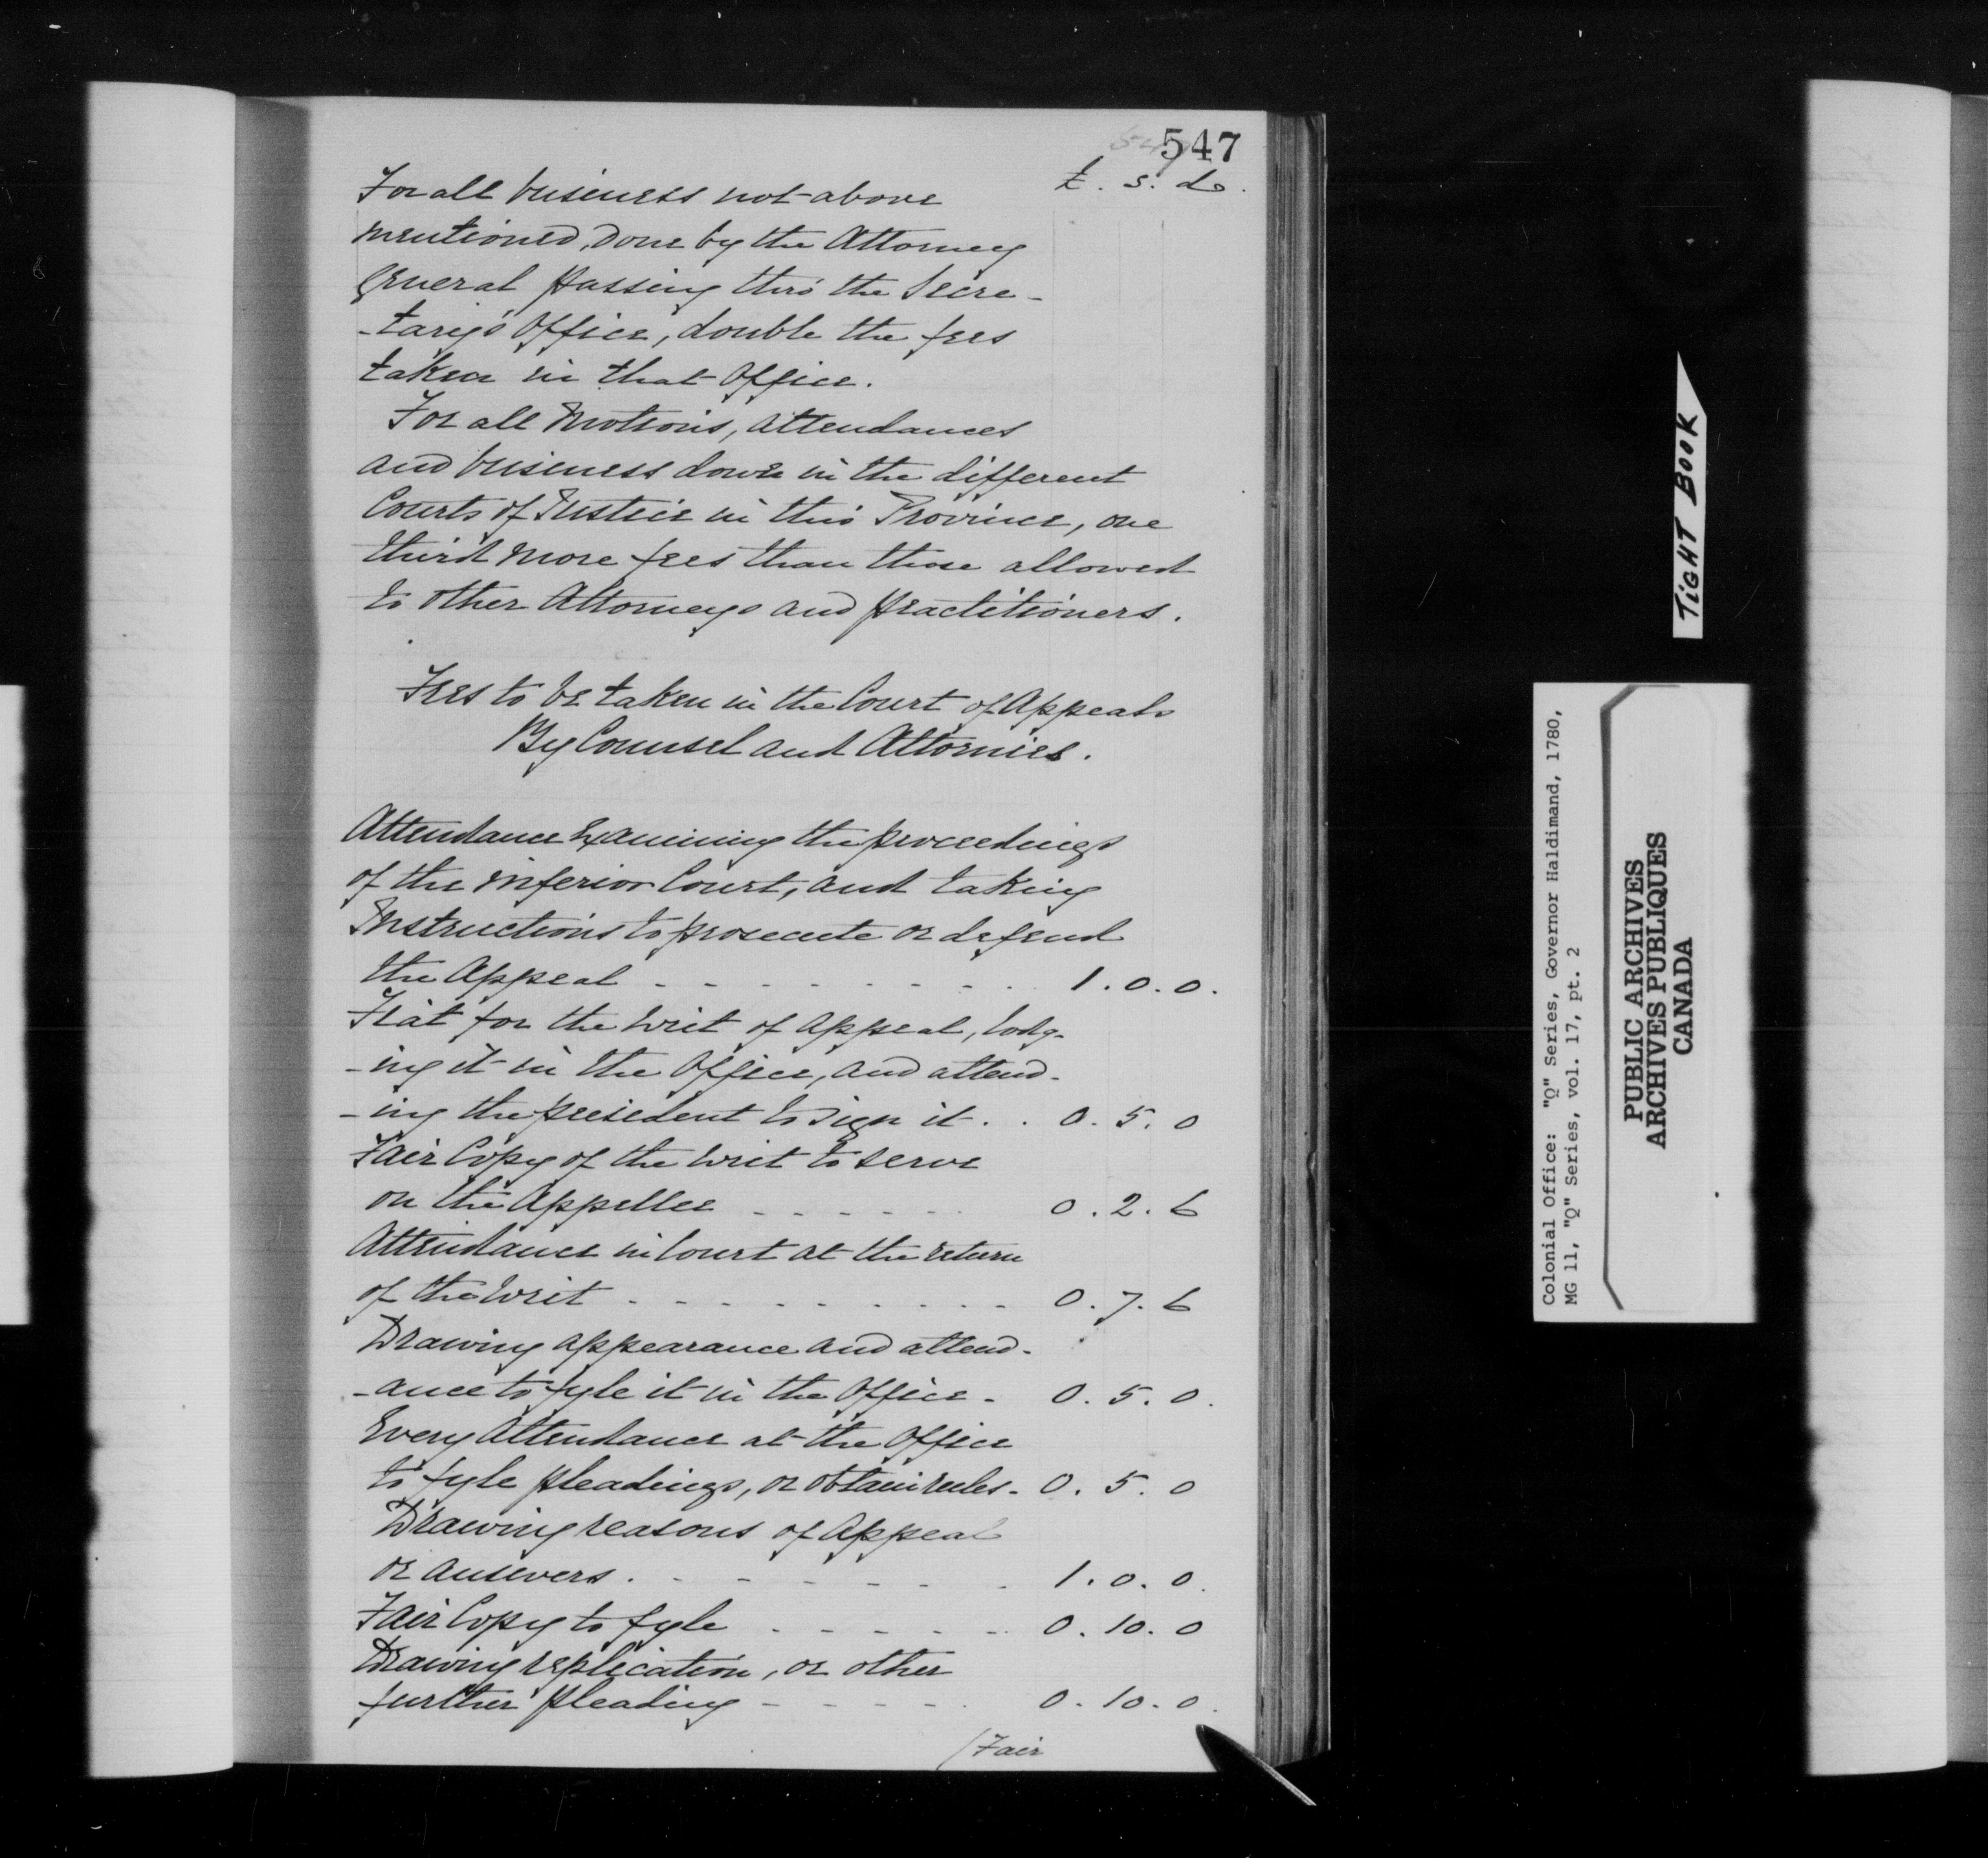 547
£. s. d.
For all business not above
mentioned, done by the Attorney
General passing thro' the Secre-
-tary's Office, double the fees
taken in that Office.
For all Motions, Attendances
and business done in the different
Courts of Justice in this Province, one
third more fees than those allowed
to other Attorneys and practitioners.
Fees to be taken in the Court of Appeals
By Counsel and Attornies.
Attendance Examining the proceedings
of the inferior Court, and taking
Instructions to prosecute or defend
the Appeal - - - - - - - - - 1. 0. 0.
Fiat for the Writ of Appeal, lodg-
-ing it in the Office, and attend-
-ing the president to sign it . . 0. 5. 0
Fair Copy of the Writ to serve
on the Appellee - - - - - - 0. 2. 6
Attendance in Court at the return
of the Writ - - - - - - - - - - 0. 7. 6
Drawing appearance and attend-
-ance to fyle it in the Office - 0. 5. 0.
Every Attendance at the Office
to fyle pleadings, or obtain rules - 0. 5. 0
Drawing reasons of Appeal
or answers . - - - - - - - 1. 0. 0.
Fair Copy to fyle - - - - - 0. 10. 0
Drawing replication, or other
further pleading - - - - - 0. 10. 0.
(Fair
TIGHT BOOK
Colonial Office: "Q" Series, Governor Haldimand, 1780,
MG 11, "Q" Series, vol. 17, pt. 2
PUBLIC ARCHIVES
ARCHIVES PUBLIQUES
CANADA